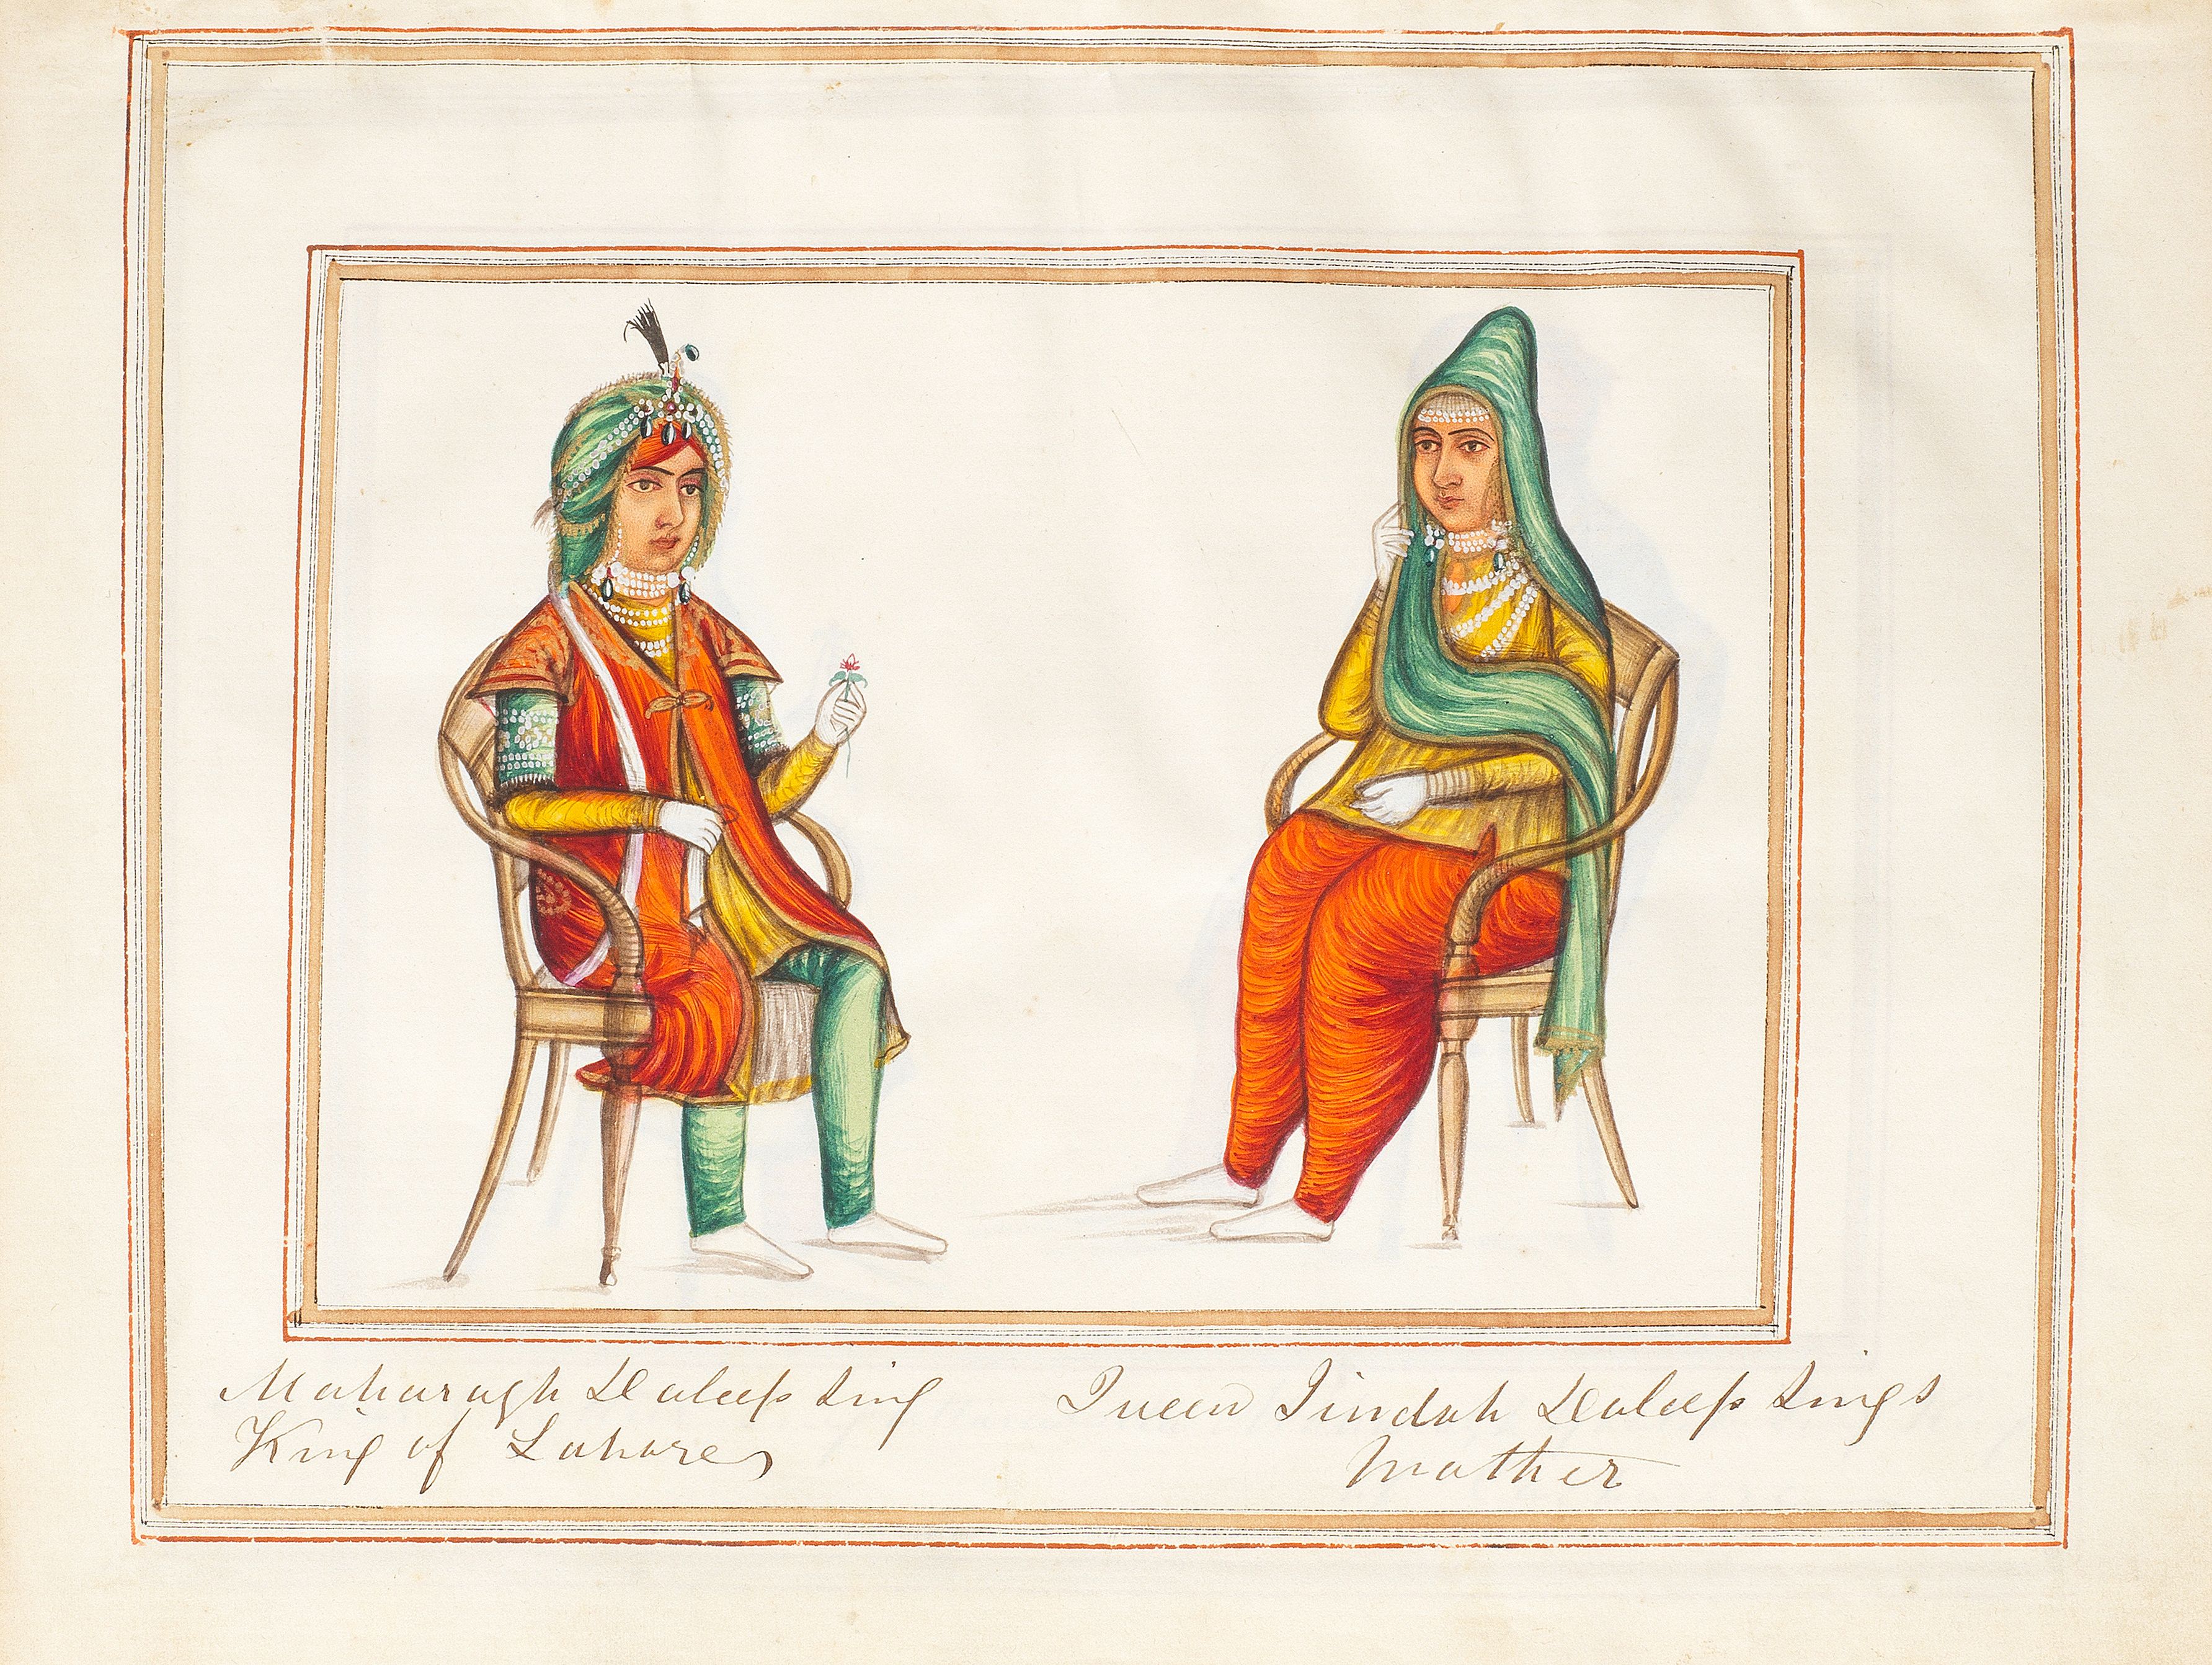 Maharagh Daleep Sing
King of Lahore
Queen Jindah Daleep Sings
Mother